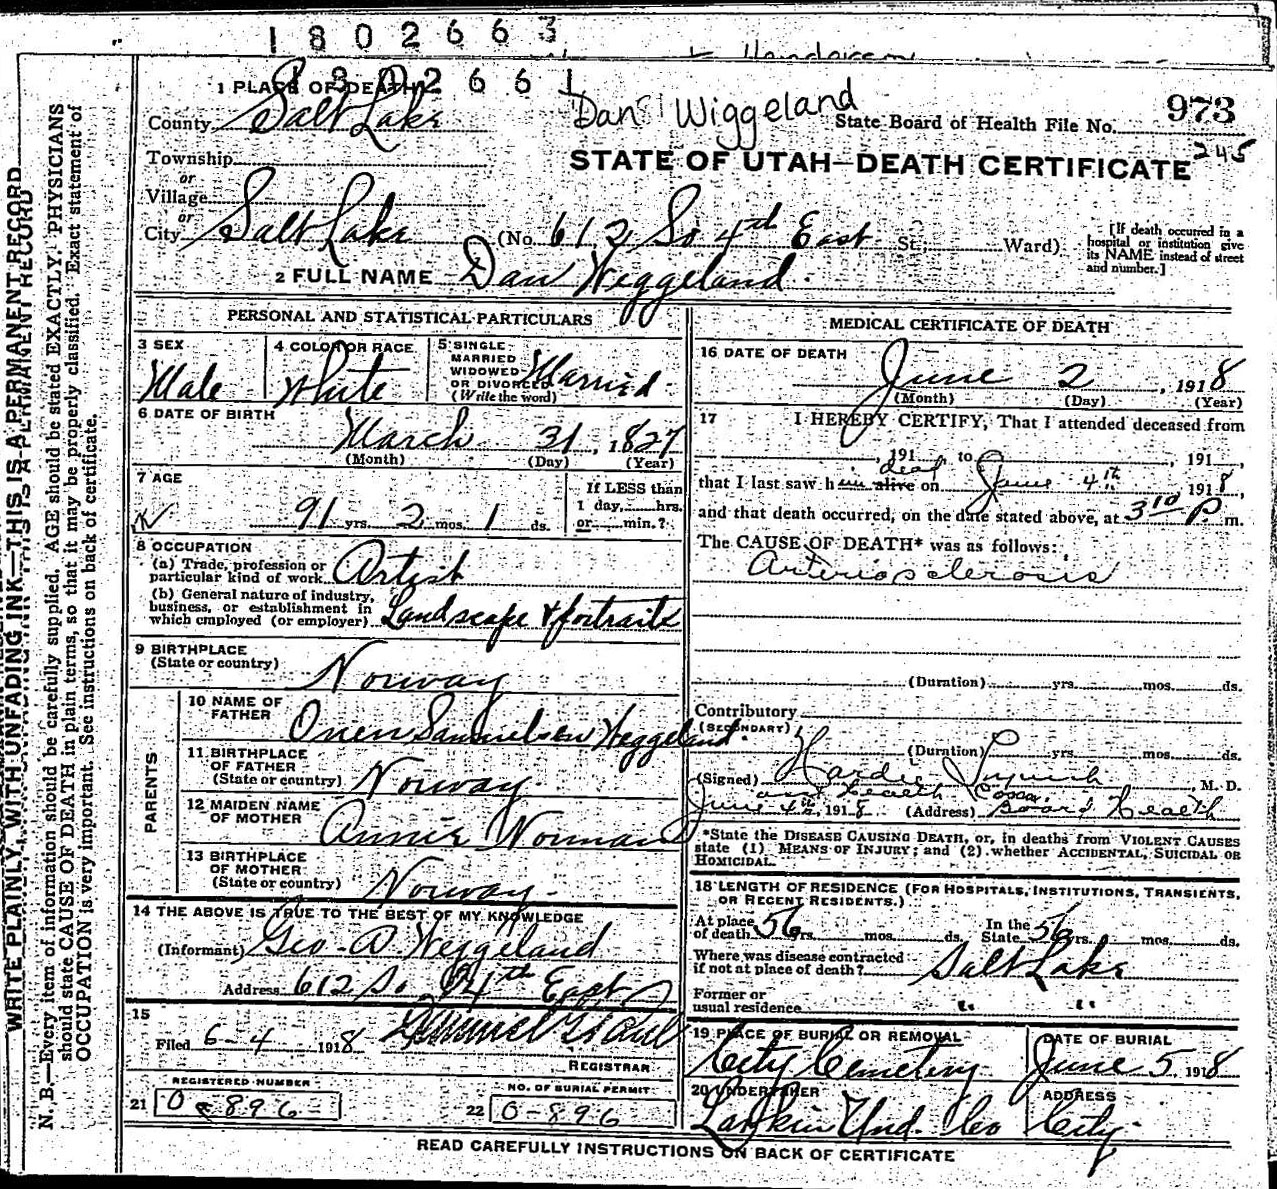 1802663
1802661
Dan Wiggeland
973
State Board of Health File No.
245
STATE OF UTAH—DEATH CERTIFICATE
1 PLACE OF DEATH
County Salt Lake
Township
or
Village
or
City Salt Lake (No. 612 So 4th East St.; Ward)
[If death occurred in a hospital or institution give its NAME instead of street and number.]
2 FULL NAME Dan Weggeland
PERSONAL AND STATISTICAL PARTICULARS
3 SEX
Male
4 COLOR OR RACE
White
5 SINGLE
MARRIED
WIDOWED
OR DIVORCED
(Write the word)
Married
6 DATE OF BIRTH
March 31, 1827
(Month) (Day) (Year)
7 AGE
91 yrs. 2 mos. 1 ds.
If LESS than
1 day, hrs.
or min.?
8 OCCUPATION
(a) Trade, profession or
particular kind of work Artist
(b) General nature of industry,
business, or establishment in
which employed (or employer) Landscape & portraits
9 BIRTHPLACE
(State or country) Norway
PARENTS
10 NAME OF
FATHER
Samuelsen Weggeland
11 BIRTHPLACE
OF FATHER
(State or country) Norway
12 MAIDEN NAME
OF MOTHER Annie Norman
13 BIRTHPLACE
OF MOTHER
(State or country) Norway
14 THE ABOVE IS TRUE TO THE BEST OF MY KNOWLEDGE
(Informant) Geo A Weggeland
Address 612 So 4th East
15
Filed 6-4 1918
REGISTRAR
REGISTERED NUMBER
21 0-896
NO. OF BURIAL PERMIT
22 0-896
MEDICAL CERTIFICATE OF DEATH
16 DATE OF DEATH
June 2, 1918
(Month) (Day) (Year)
17 I HEREBY CERTIFY, That I attended deceased from
, 191 to , 191 ,
dead
that I last saw him alive on June 4th 1918,
and that death occurred, on the date stated above, at 3 10 P. m.
The CAUSE OF DEATH* was as follows:
Arteriosclerosis
(Duration) yrs. mos. ds.
Contributory
(SECONDARY)
(Duration) yrs. mos. ds.
(Signed) , M. D.
June 4th, 1918 (Address) Board Health
*State the DISEASE CAUSING DEATH, or, in deaths from VIOLENT CAUSES
state (1) MEANS OF INJURY; and (2) whether ACCIDENTAL, SUICIDAL OR
HOMICIDAL.
18 LENGTH OF RESIDENCE (FOR HOSPITALS, INSTITUTIONS, TRANSIENTS,
OR RECENT RESIDENTS.)
At place
of death 56 yrs. mos. ds.
In the
State 56 yrs. mos. ds.
Where was disease contracted
if not at place of death? Salt Lake
Former or
usual residence " "
19 PLACE OF BURIAL OR REMOVAL
City Cemetery
DATE OF BURIAL
June 5 1918
20 UNDERTAKER
Larkin Und. Co
ADDRESS
City
READ CAREFULLY INSTRUCTIONS ON BACK OF CERTIFICATE
WRITE PLAINLY, WITH UNFADING INK—THIS IS A PERMANENT RECORD
N. B.—Every item of information should be carefully supplied. AGE should be stated EXACTLY. PHYSICIANS
should state CAUSE OF DEATH in plain terms, so that it may be properly classified. Exact statement of
OCCUPATION is very important. See instructions on back of certificate.